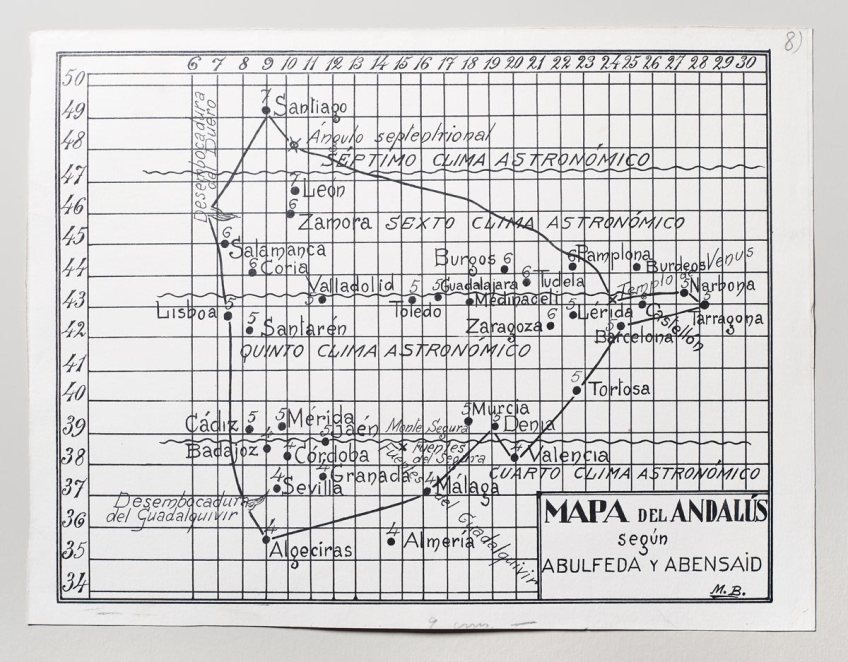 8)
6 7 8 9 10 11 12 13 14 15 16 17 18 19 20 21 22 23 24 25 26 27 28 29 30
50
49
48
47
46
45
44
43
42
41
40
39
38
37
36
35
34
Desembocadura
del Duero
7 Santiago
Ángulo septentrional
SÉPTIMO CLIMA ASTRONÓMICO
7 León
6
Zamora
SEXTO CLIMA ASTRONÓMICO
6 Salamanca
6 Coria
Burgos 6
6 Pamplona
Burdeos
Templo Venus
Valladolid
5
5
Toledo
5 Guadalajara
5 Medinaceli
6 Tudela
5 Narbona
Lisboa 5
5 Santarén
Zaragoza 6
5 Lérida
6 Castellón
5 Barcelona
5 Tarragona
QUINTO CLIMA ASTRONÓMICO
5 Tortosa
Cádiz 5
5 Mérida
5 Jaén
Monte Segura
5 Murcia
5 Denia
Badajoz 4
4 Córdoba
Fuentes
del Segura
4 Valencia
4 Sevilla
4 Granada
4 Málaga
CUARTO CLIMA ASTRONÓMICO
Fuentes del Guadalquivir
Desembocadura
del Guadalquivir
4
Algeciras
4 Almería
MAPA DEL ANDALÚS
según
ABULFEDA Y ABENSAID
M. B.